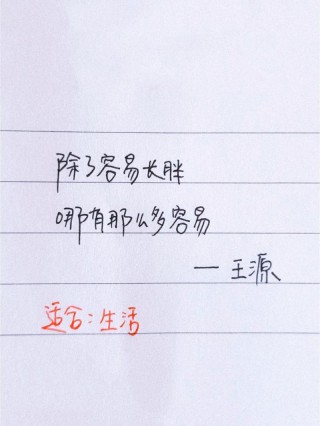 除了容易长胖
哪有那么多容易
— 王源
适合:生活